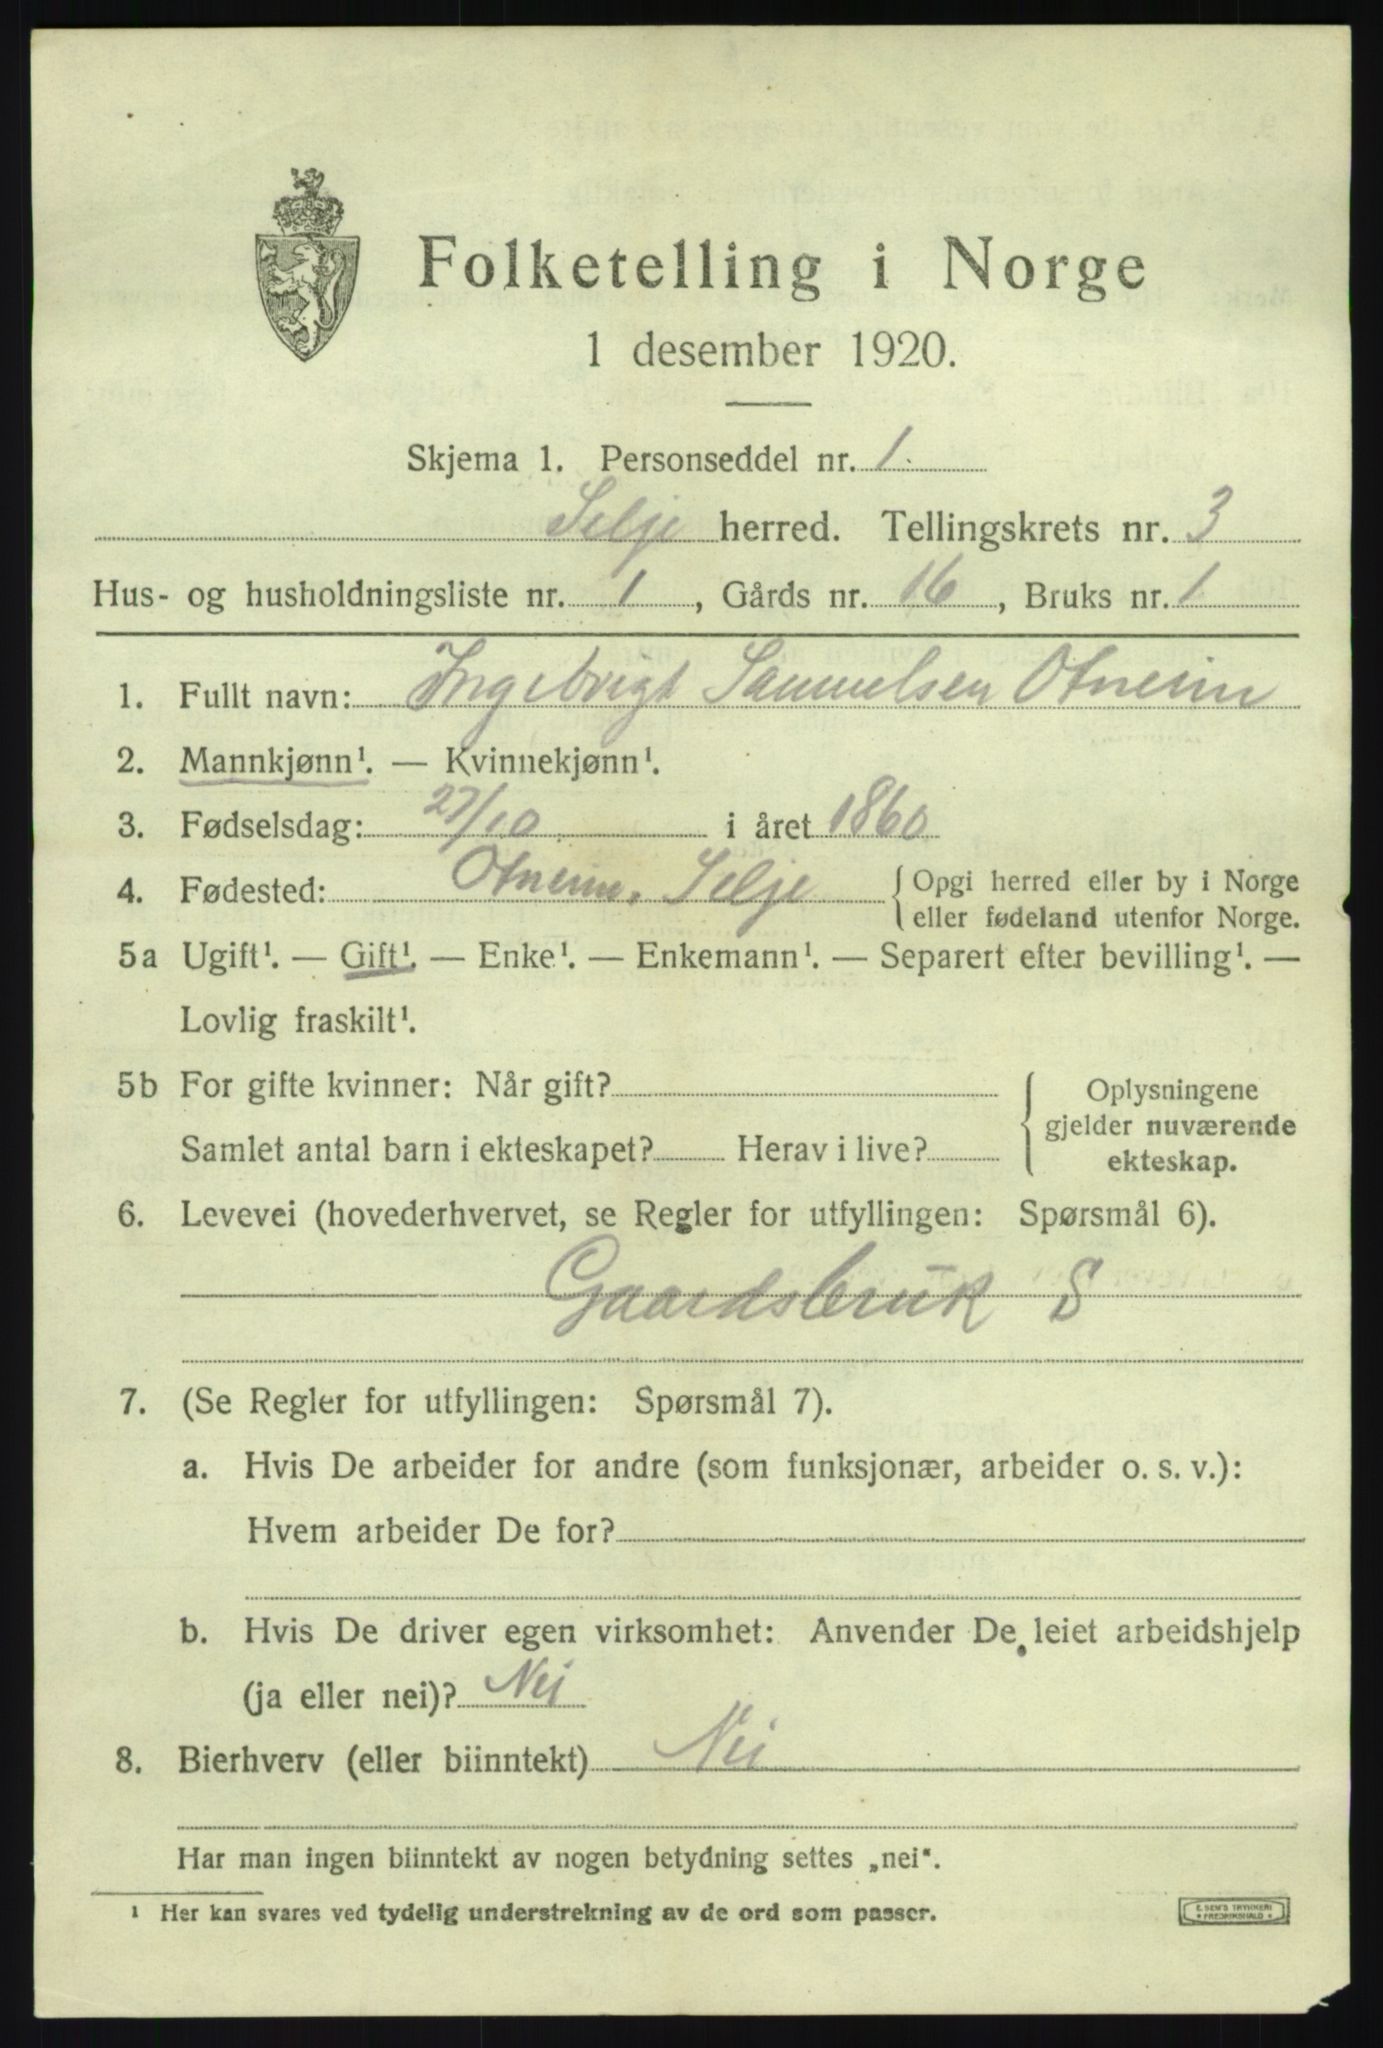 Folketelling i Norge
1 desember 1920.
Skjema 1. Personseddel nr. 1
Selje herred. Tellingskrets nr. 3
Hus- og husholdningsliste nr. 1, Gårds nr. 16, Bruks nr. 1
1. Fullt navn: Ingebrigt Samuelsen Otneim
2. Mannkjønn¹. — Kvinnekjønn¹.
3. Fødselsdag: 27/10 i året 1860
4. Fødested: Otneim, Selje { Opgi herred eller by i Norge
eller fødeland utenfor Norge.
5a Ugift¹. — Gift¹. — Enke¹. — Enkemann¹. — Separert efter bevilling¹. —
Lovlig fraskilt¹.
5b For gifte kvinner: Når gift?
Samlet antal barn i ekteskapet? Herav i live?
{ Oplysningene
gjelder nuværende
ekteskap.
6. Levevei (hovederhvervet, se Regler for utfyllingen: Spørsmål 6).
Gaardsbruk S
7. (Se Regler for utfyllingen: Spørsmål 7).
a. Hvis De arbeider for andre (som funksjonær, arbeider o. s. v.):
Hvem arbeider De for?
b. Hvis De driver egen virksomhet: Anvender De leiet arbeidshjelp
(ja eller nei)? Nei
8. Bierhverv (eller biinntekt) Nei
Har man ingen biinntekt av nogen betydning settes „nei“.
¹ Her kan svares ved tydelig understrekning av de ord som passer.
E. SEM'S TRYKKERI
* FREDRIKSHALD *